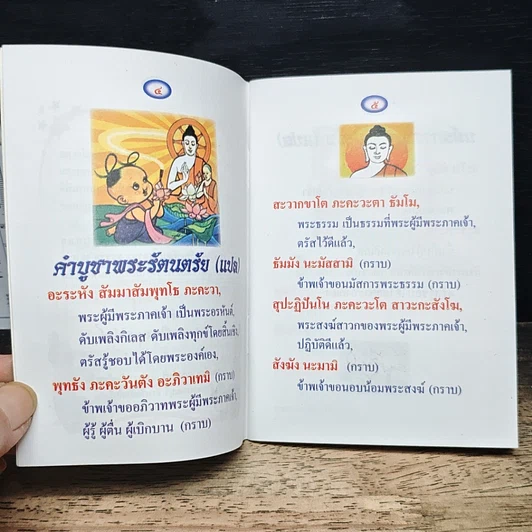 ๔
คำบูชาพระรัตนตรัย (แปล)
อะระหัง สัมมาสัมพุทโธ ภะคะวา,
พระผู้มีพระภาคเจ้า เป็นพระอรหันต์,
ดับเพลิงกิเลส ดับเพลิงทุกข์โดยสิ้นเชิง,
ตรัสรู้ชอบได้โดยพระองค์เอง,
พุทธัง ภะคะวันตัง อะภิวาเทมิ (กราบ)
ข้าพเจ้าขออภิวาทพระผู้มีพระภาคเจ้า,
ผู้รู้ ผู้ตื่น ผู้เบิกบาน (กราบ)
๕
สะวากขาโต ภะคะวะตา ธัมโม,
พระธรรม เป็นธรรมที่พระผู้มีพระภาคเจ้า,
ตรัสไว้ดีแล้ว,
ธัมมัง นะมัสสามิ (กราบ)
ข้าพเจ้าขอนมัสการพระธรรม (กราบ)
สุปะฏิปันโน ภะคะวะโต สาวะกะสังโฆ,
พระสงฆ์สาวกของพระผู้มีพระภาคเจ้า,
ปฏิบัติดีแล้ว,
สังฆัง นะมามิ (กราบ)
ข้าพเจ้าขอนอบน้อมพระสงฆ์ (กราบ)